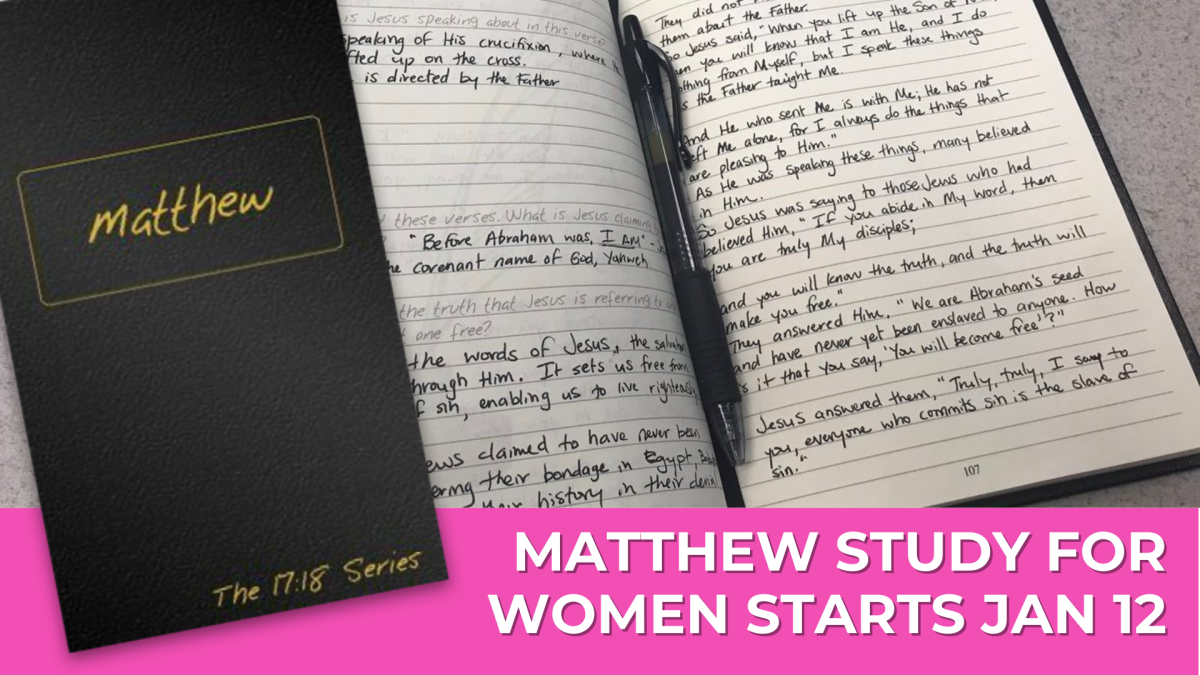 Matthew
The 17:18 Series
is Jesus speaking about in this verse?
speaking of His crucifixion, where
fted up on the cross.
is directed by the Father
these verses. What is Jesus claiming
"Before Abraham was, I AM" -
he covenant name of God, Yahweh.
the truth that Jesus is referring to
one free?
the words of Jesus, the
hrough Him. It sets us free from
f sin, enabling us to live
ews claimed to have never been
ering their bondage in Egypt,
their history in their denial
They did not
them about the Father.
So Jesus said, "When you lift up the Son of
en you will know that I am He, and I do
othing from Myself, but I speak these things
s the Father taught Me.
And He who sent Me is with Me; He has not
eft Me alone, for I always do the things that
are pleasing to Him."
As He was speaking these things, many believed
in Him.
So Jesus was saying to those Jews who had
believed Him, "If you abide in My word, then
you are truly My disciples;
and you will know the truth, and the truth will
make you free."
They answered Him, "We are Abraham's seed
and have never yet been enslaved to anyone. How
is it that you say, 'You will become free'?"
Jesus answered them, "Truly, truly, I say to
you, everyone who commits sin is the slave of
sin."
107
MATTHEW STUDY FOR
WOMEN STARTS JAN 12